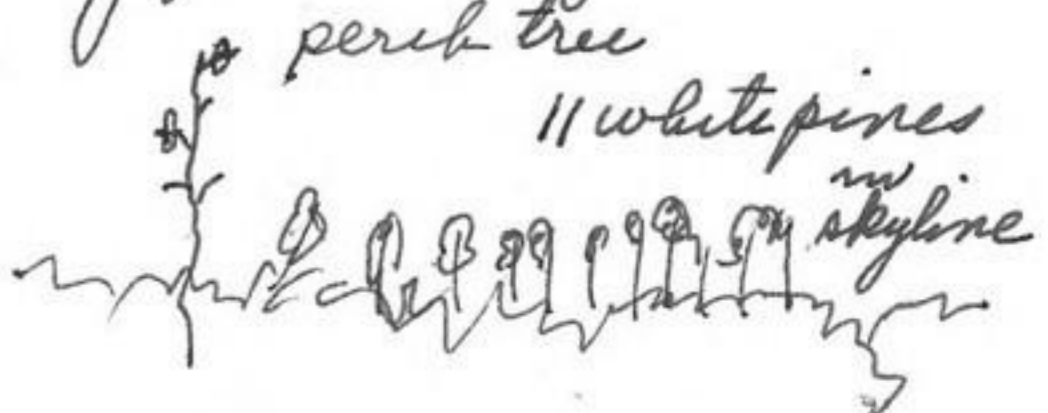 perch tree
11 white pines
in
skyline